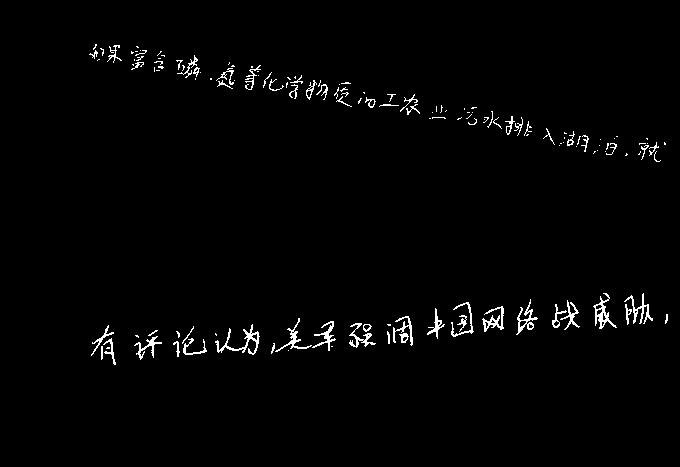 如果富含磷、氮等化学物质的工农业污水排入湖泊,就
有评论认为,美军强调中国网络战威胁,